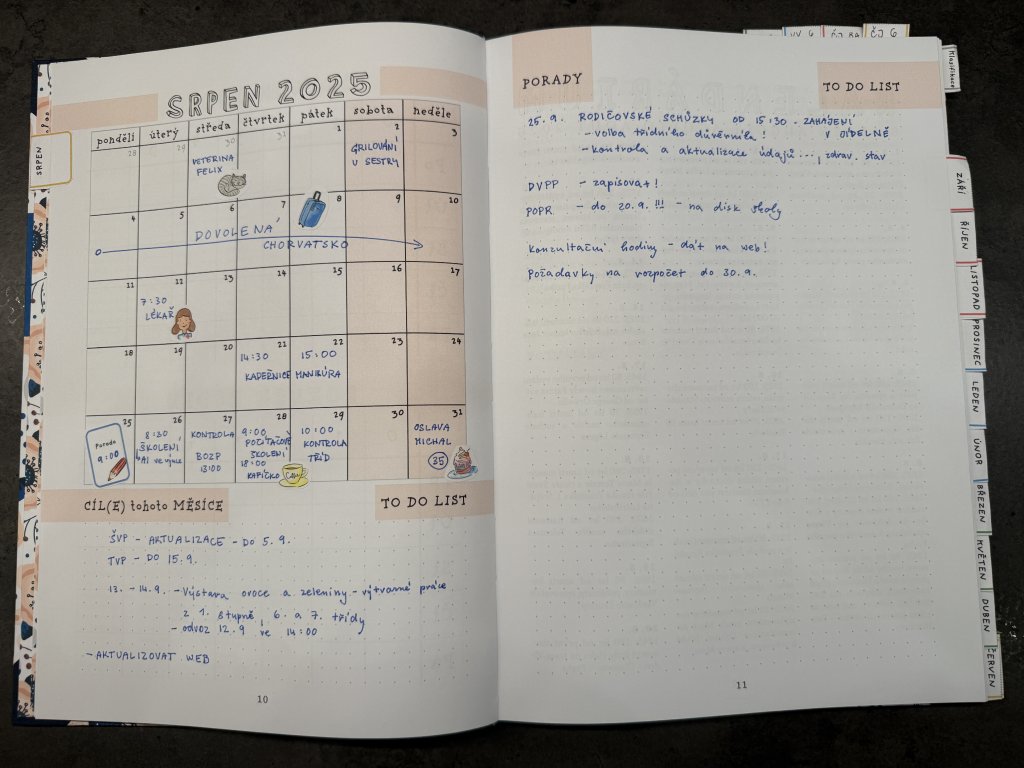 VV 6 ČJ 8A ČJ 6
Klasifikace
SRPEN 2025
SRPEN
pondělí úterý středa čtvrtek pátek sobota neděle
28 29 30 31 1 2 3
VETERINA
FELIX
GRILOVÁNÍ
U SESTRY
4 5 6 7 8 9 10
DOVOLENÁ
CHORVATSKO
11 12 13 14 15 16 17
7:30
LÉKAŘ
18 19 20 21 22 23 24
14:30
KADEŘNICE
15:00
MANIKÚRA
25 26 27 28 29 30 31
Porada
9:00
8:30
ŠKOLENÍ
AI ve výuce
KONTROLA
BOZP
13:00
9:00
POČÍTAČOVÉ
ŠKOLENÍ
18:00
KAFÍČKO
10:00
KONTROLA
TŘÍD
OSLAVA
MICHAL
35
CÍL(E) tohoto MĚSÍCE
TO DO LIST
ŠVP - AKTUALIZACE - DO 5.9.
TVP - DO 15.9.
13. - 14.9. - Výstava ovoce a zeleniny - výtvarné práce
z 1. stupně, 6. a 7. třídy
- odvoz 12.9 ve 14:00
- AKTUALIZOVAT WEB
10
PORADY
TO DO LIST
25.9. RODIČOVSKÉ SCHŮZKY OD 15:30 - ZAHÁJENÍ
- volba třídního důvěrníka! V JÍDELNĚ
- kontrola a aktualizace údajů..., zdrav. stav
DVPP - zapisovat!
POPR - do 20.9. !!! - na disk školy
Konzultační hodiny - dát na web!
Požadavky na rozpočet do 30.9.
11
ZÁŘÍ
ŘÍJEN
LISTOPAD
PROSINEC
LEDEN
ÚNOR
BŘEZEN
KVĚTEN
DUBEN
ČERVEN